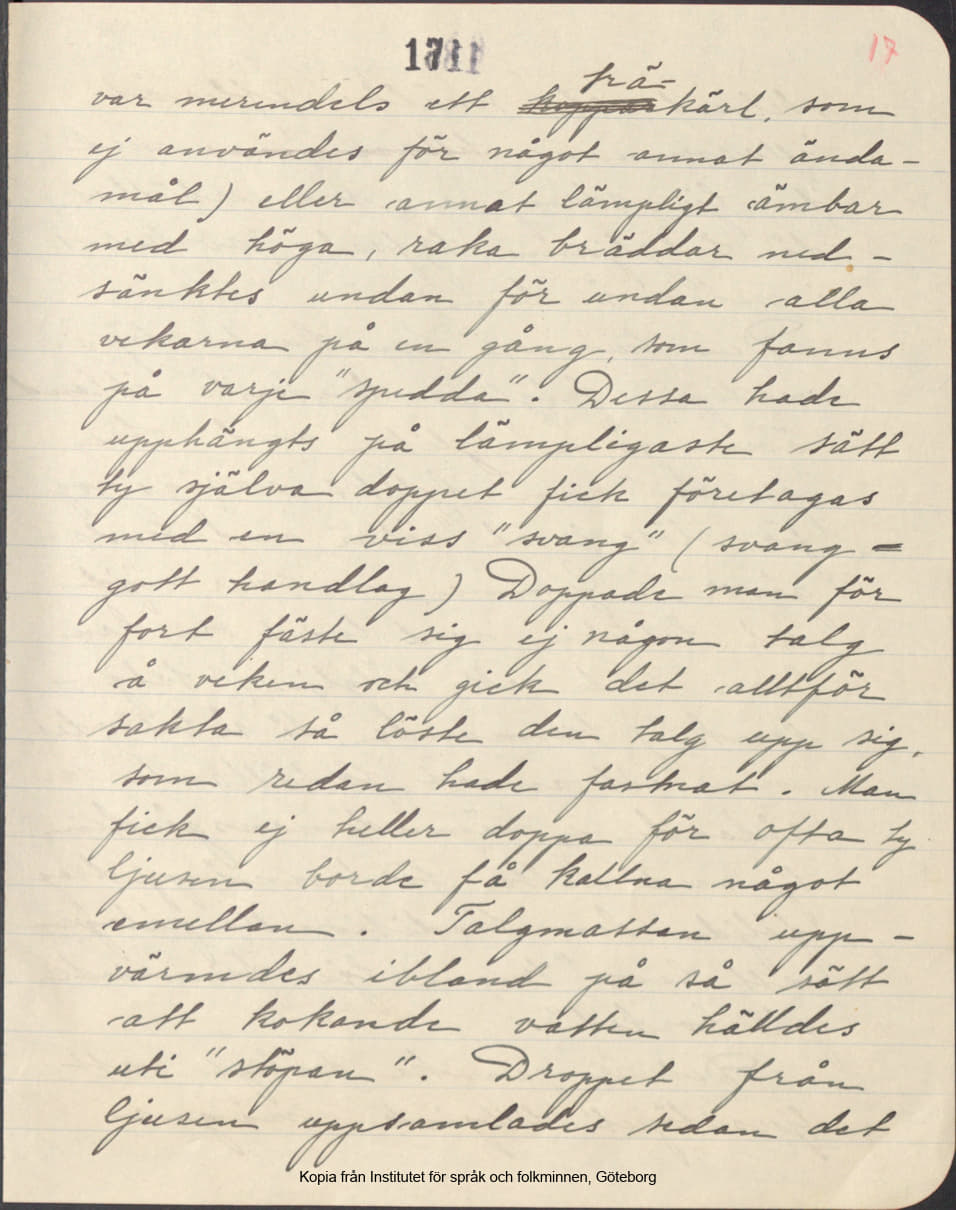 17
trä-
var merendels ett kopparkärl, som
ej användes för något annat ända-
mål) eller annat lämpligt ämbar
med höga, raka bräddar ned-
sänktes undan för undan alla
vekarna på en gång, som fanns
på varje "spedda". Dessa hade
upphängts på lämpligaste sätt
ty själva doppet fick företagas
med en viss "svang" (svang =
gott handlag) Doppade man för
fort fäste sig ej någon talg
å veken och gick det alltför
sakta så löste den talg upp sig,
som redan hade fastnat. Man
fick ej heller doppa för ofta ty
ljusen borde få kallna något
emellan. Talgmassan upp-
värmdes ibland på så sätt
att kokande vatten hälldes
uti "stöpan". Droppet från
ljusen uppsamlades sedan det
Kopia från Institutet för språk och folkminnen, Göteborg